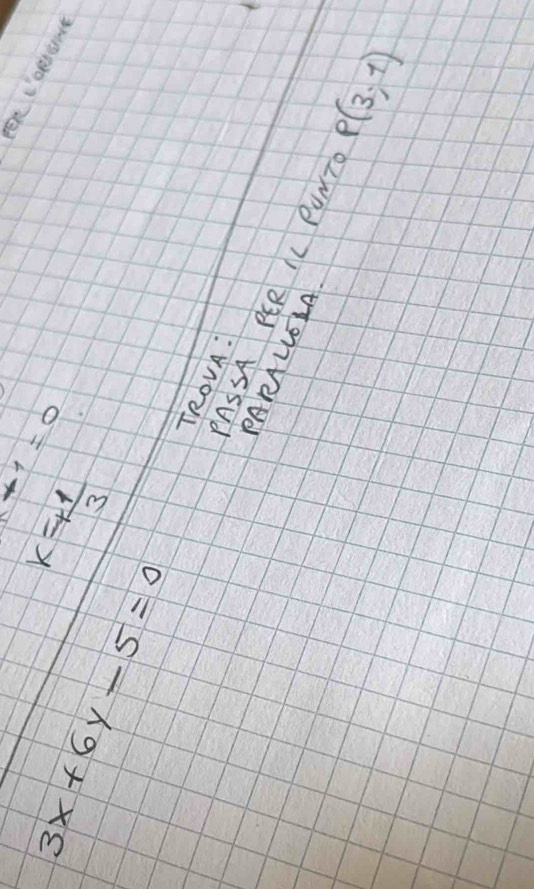 PER L'ORIGINE
+1=0
K=+1/3
3x+6y-5=0
TROVA:
PASSA PER IL PUNTO P(3;1)
PARALLELA.